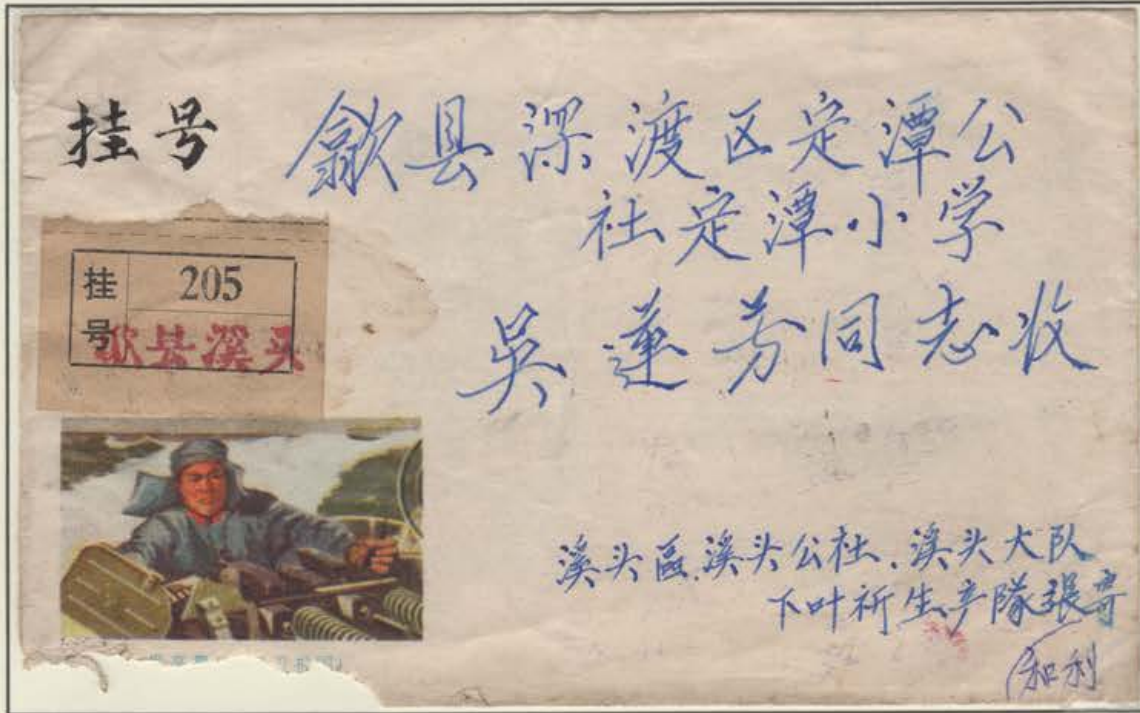 挂号
歙县深渡区定潭公
社定潭小学
吳莲芳同志收
挂号
205
歙县溪头
溪头區.溪头公社.溪头大队
下叶祈生产隊張寄
(和利